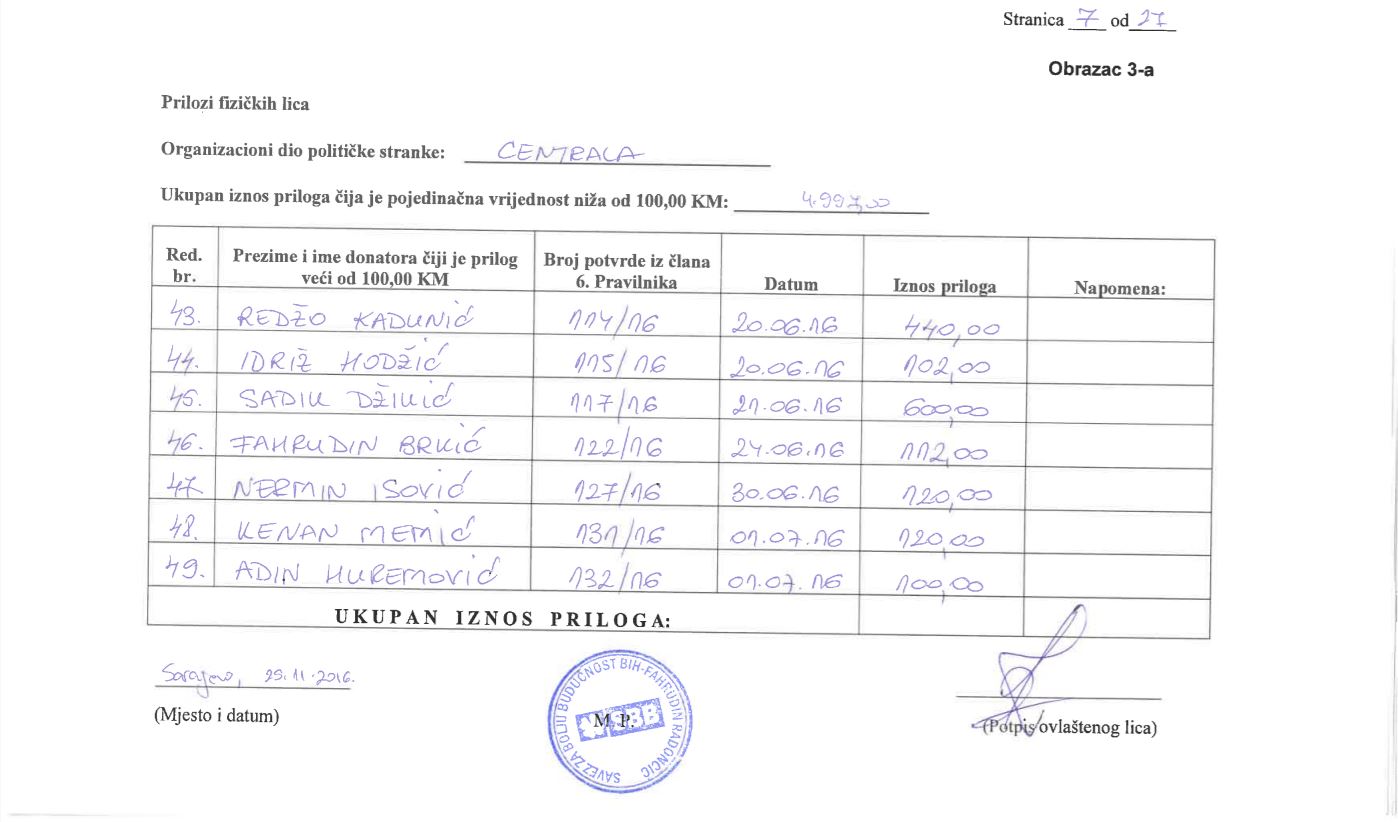 Stranica 7 od 27
Obrazac 3-a
Prilozi fizičkih lica
Organizacioni dio političke stranke: CENTRALA
Ukupan iznos priloga čija je pojedinačna vrijednost niža od 100,00 KM: 4.997,00
Red. br. Prezime i ime donatora čiji je prilog veći od 100,00 KM Broj potvrde iz člana 6. Pravilnika Datum Iznos priloga Napomena:
43. REDŽO KADUNIĆ 114/16 20.06.16 440,00
44. IDRIŽ HODŽIĆ 115/16 20.06.16 102,00
45. SADIK DŽIKIĆ 117/16 21.06.16 600,00
46. FAHRUDIN BRKIĆ 122/16 24.06.16 112,00
47. NERMIN ISOVIĆ 127/16 30.06.16 120,00
48. KENAN MEMIĆ 131/16 01.07.16 120,00
49. ADIN HUREMOVIĆ 132/16 01.07.16 100,00
UKUPAN IZNOS PRILOGA:
Sarajevo, 25.11.2016.
(Mjesto i datum)
M.P.
SAVEZ ZA BOLJU BUDUĆNOST BIH-FAHRUDIN RADONČIĆ
SBB
(Potpis ovlaštenog lica)